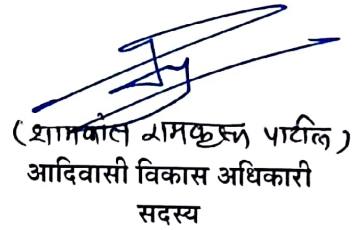 (शामकांत रामकृष्ण पाटील)
आदिवासी विकास अधिकारी
सदस्य